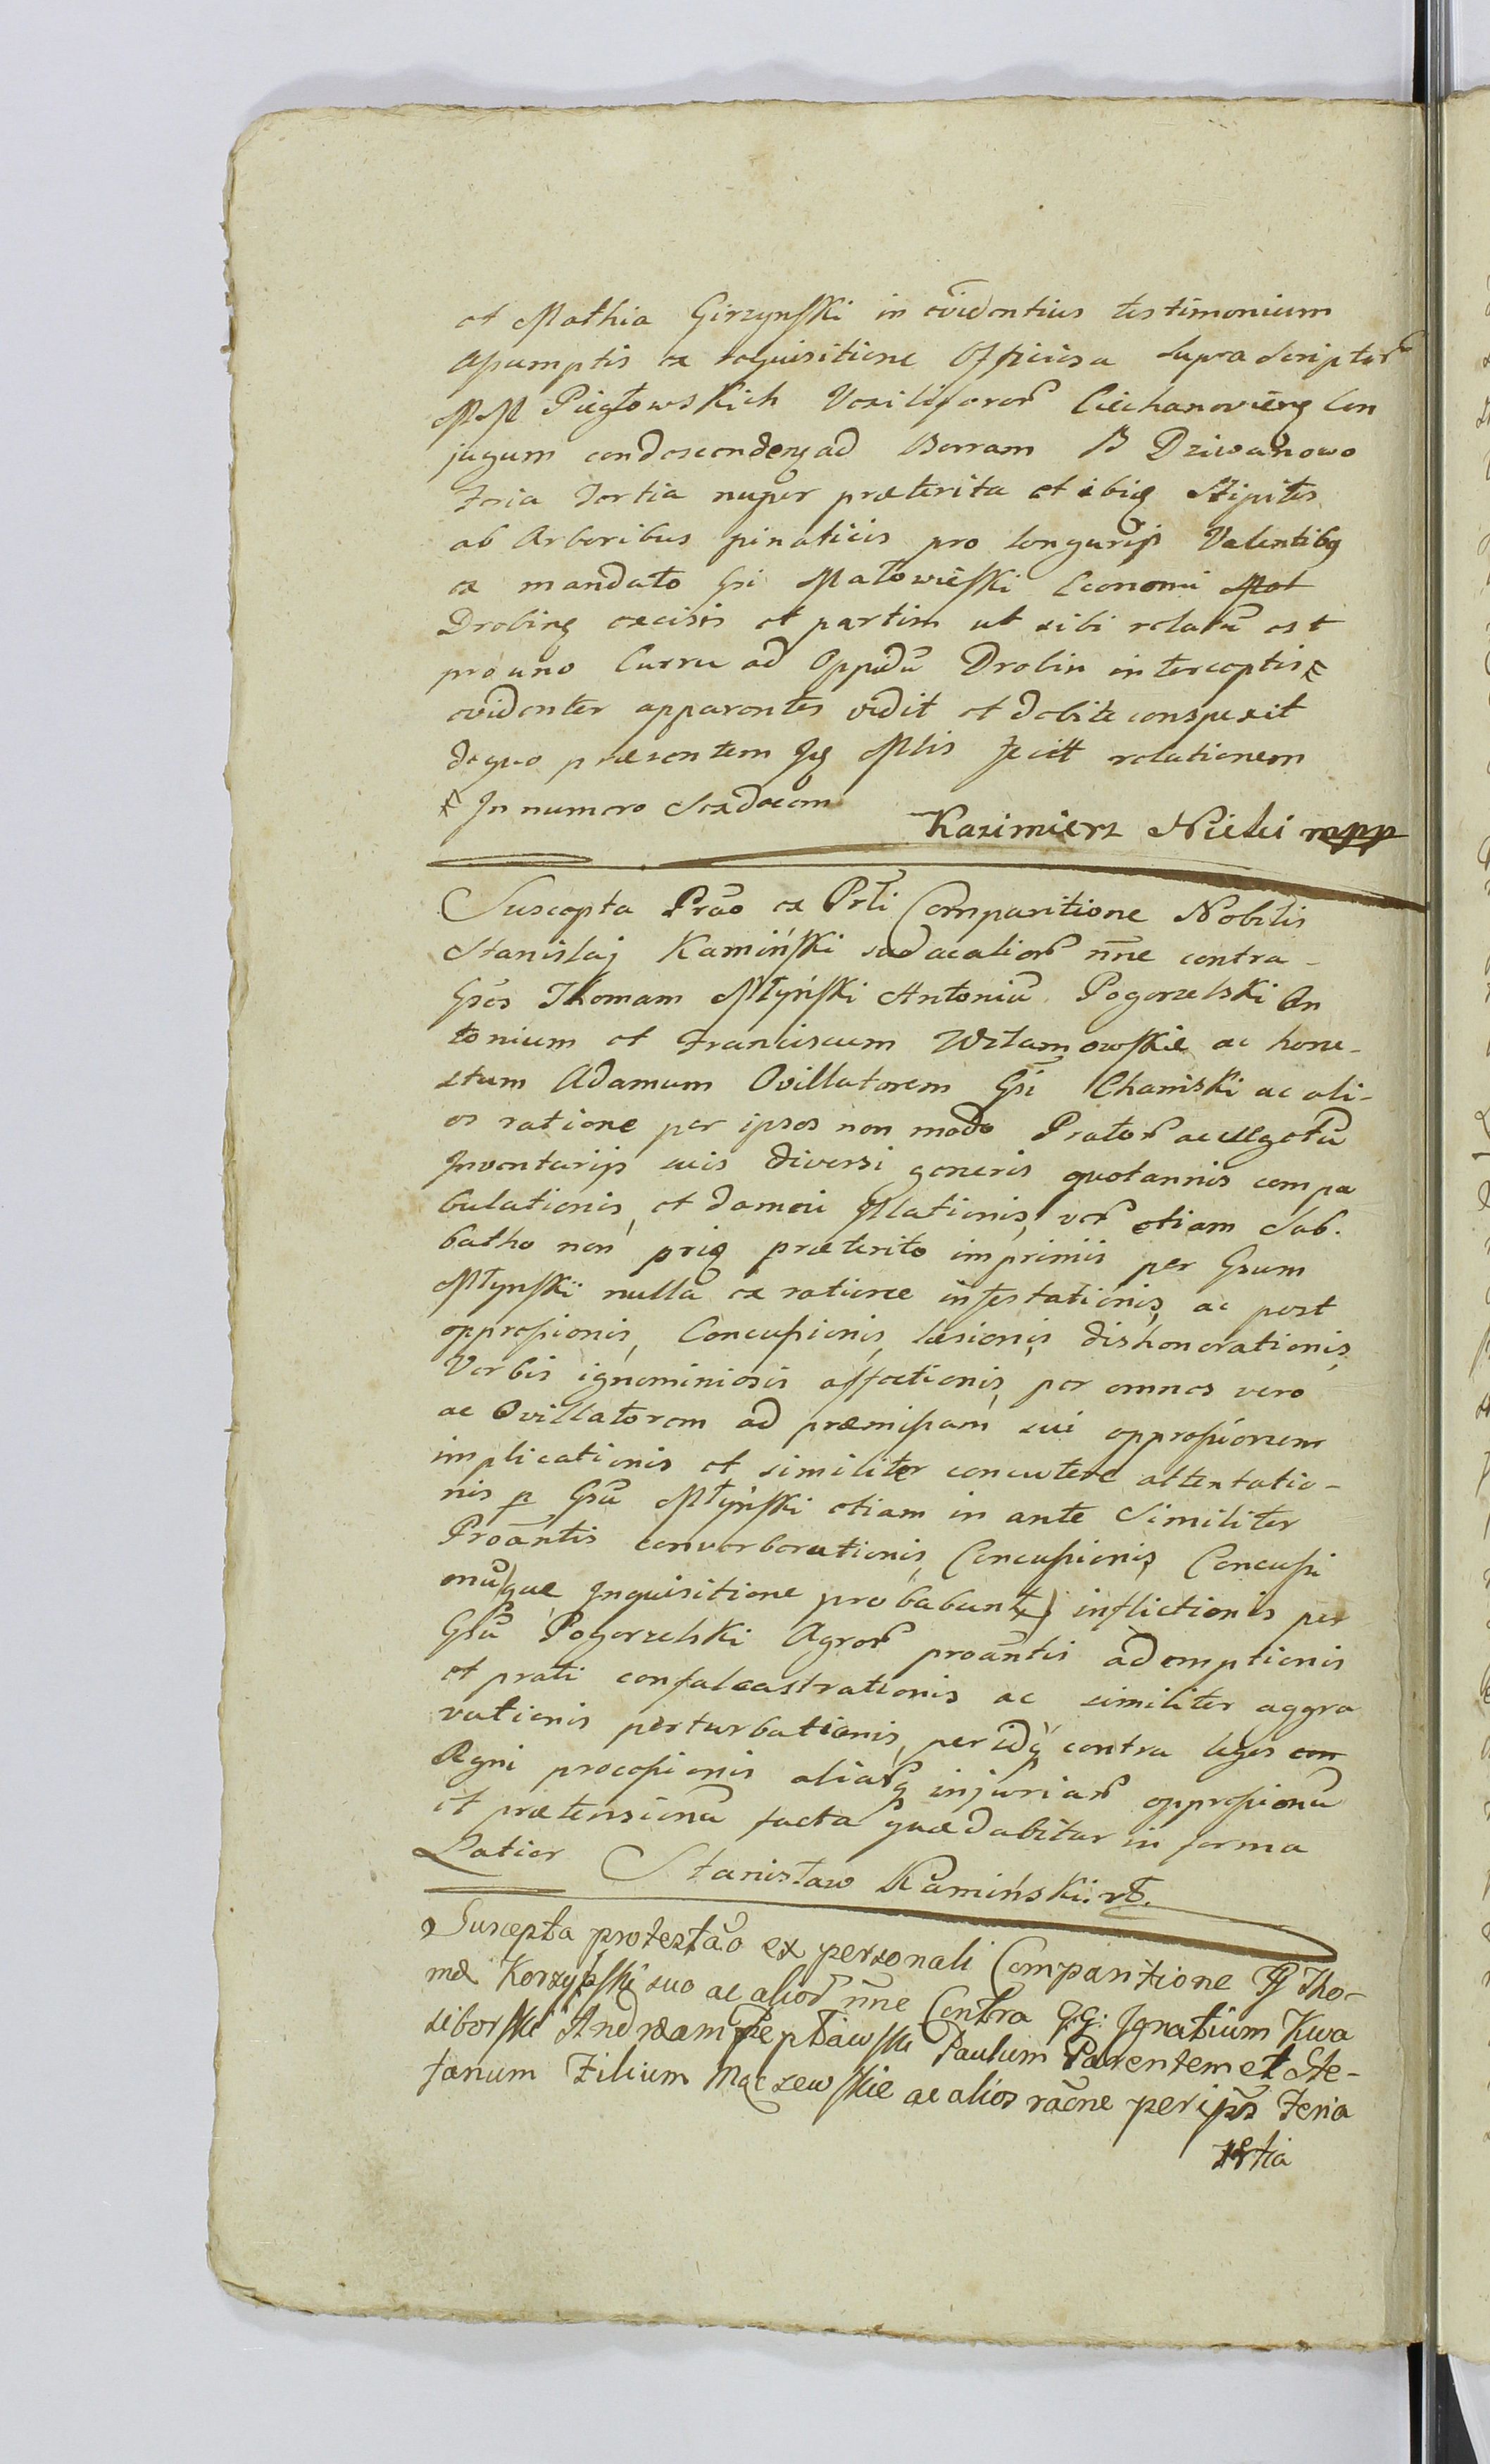 et Mathia Girzynski in evidentius testimonium
assumptis ex requisitione Officiosa supra scriptor
MM Piegłowskich Vexiliferor Ciechanovieng Con
jugum condescendens ad Borram B Dziwanowo
Feria Tertia nuper præterita et ibiq Stipites
ab Arboribus pinaticis pro longurijs Valentibq
ex mandato Gsi Małowieski Economi Mot
Drobing excisis et partim ut sibi relatū est
pro uno Curru ad Oppidū Drobin interceptis
evidenter apparentes vidit et debite conspexit
de quo præsentem Jq Mtis fecit relationem
In numero Sexdecem
Kazimierz Nicki mpp
Suscepta Prāo ex Prli Comparitione Nobilis
Stanislaj Kamiński sud ac alior nne contra
Gsos Thomam Młyński Antoniū Pogorzelski An
tonium et Franciscum Wrlamowskie ac hone-
stum Adamum Ovillatorem Gsi Chamski ac ali-
os ratione per ipsos non modo Prator ac Vgetū
Inventarijs suis diversi generis quotannis compa
bulationis, et damni Illationis, ver etiam Sab.
batho non priq præterito imprimis per Gsum
Młynski nulla ex ratione infestationis, ac post
oppressionis, Concussionis, læsionis, dishonorationis,
Verbis ignominiosis affectionis, per omnes vero
ac Ovillatorem ad præmissam sui oppressionem
implicationis et similiter concutere attentatio-
nis p Gsū Młyński etiam in ante Similiter
Proantis converberationis, Concussionis, Concussi
onū (que Inquisitione probabunt) inflictionis per
Gsū Pogorzelski Agror proāntis ademptionis
et prati confalcastrationis ac similiter aggra
vationis perturbationis, per idq contra leges con
Regni processionis aliarq injuriar oppressionū
et prætensionū facta quæ dabitur in forma
Latior Stanisław Kamiński
Suscepta protestāo ex personali Comparitione G Tho-
mæ Korzyski suo ac alior nne Contra GG: Ignatium Kwa
siborski Andream Peptawski Paulum Parentem et Ste-
fanum Filium Maczewskie ac alios racne per ipos Feria
tertia